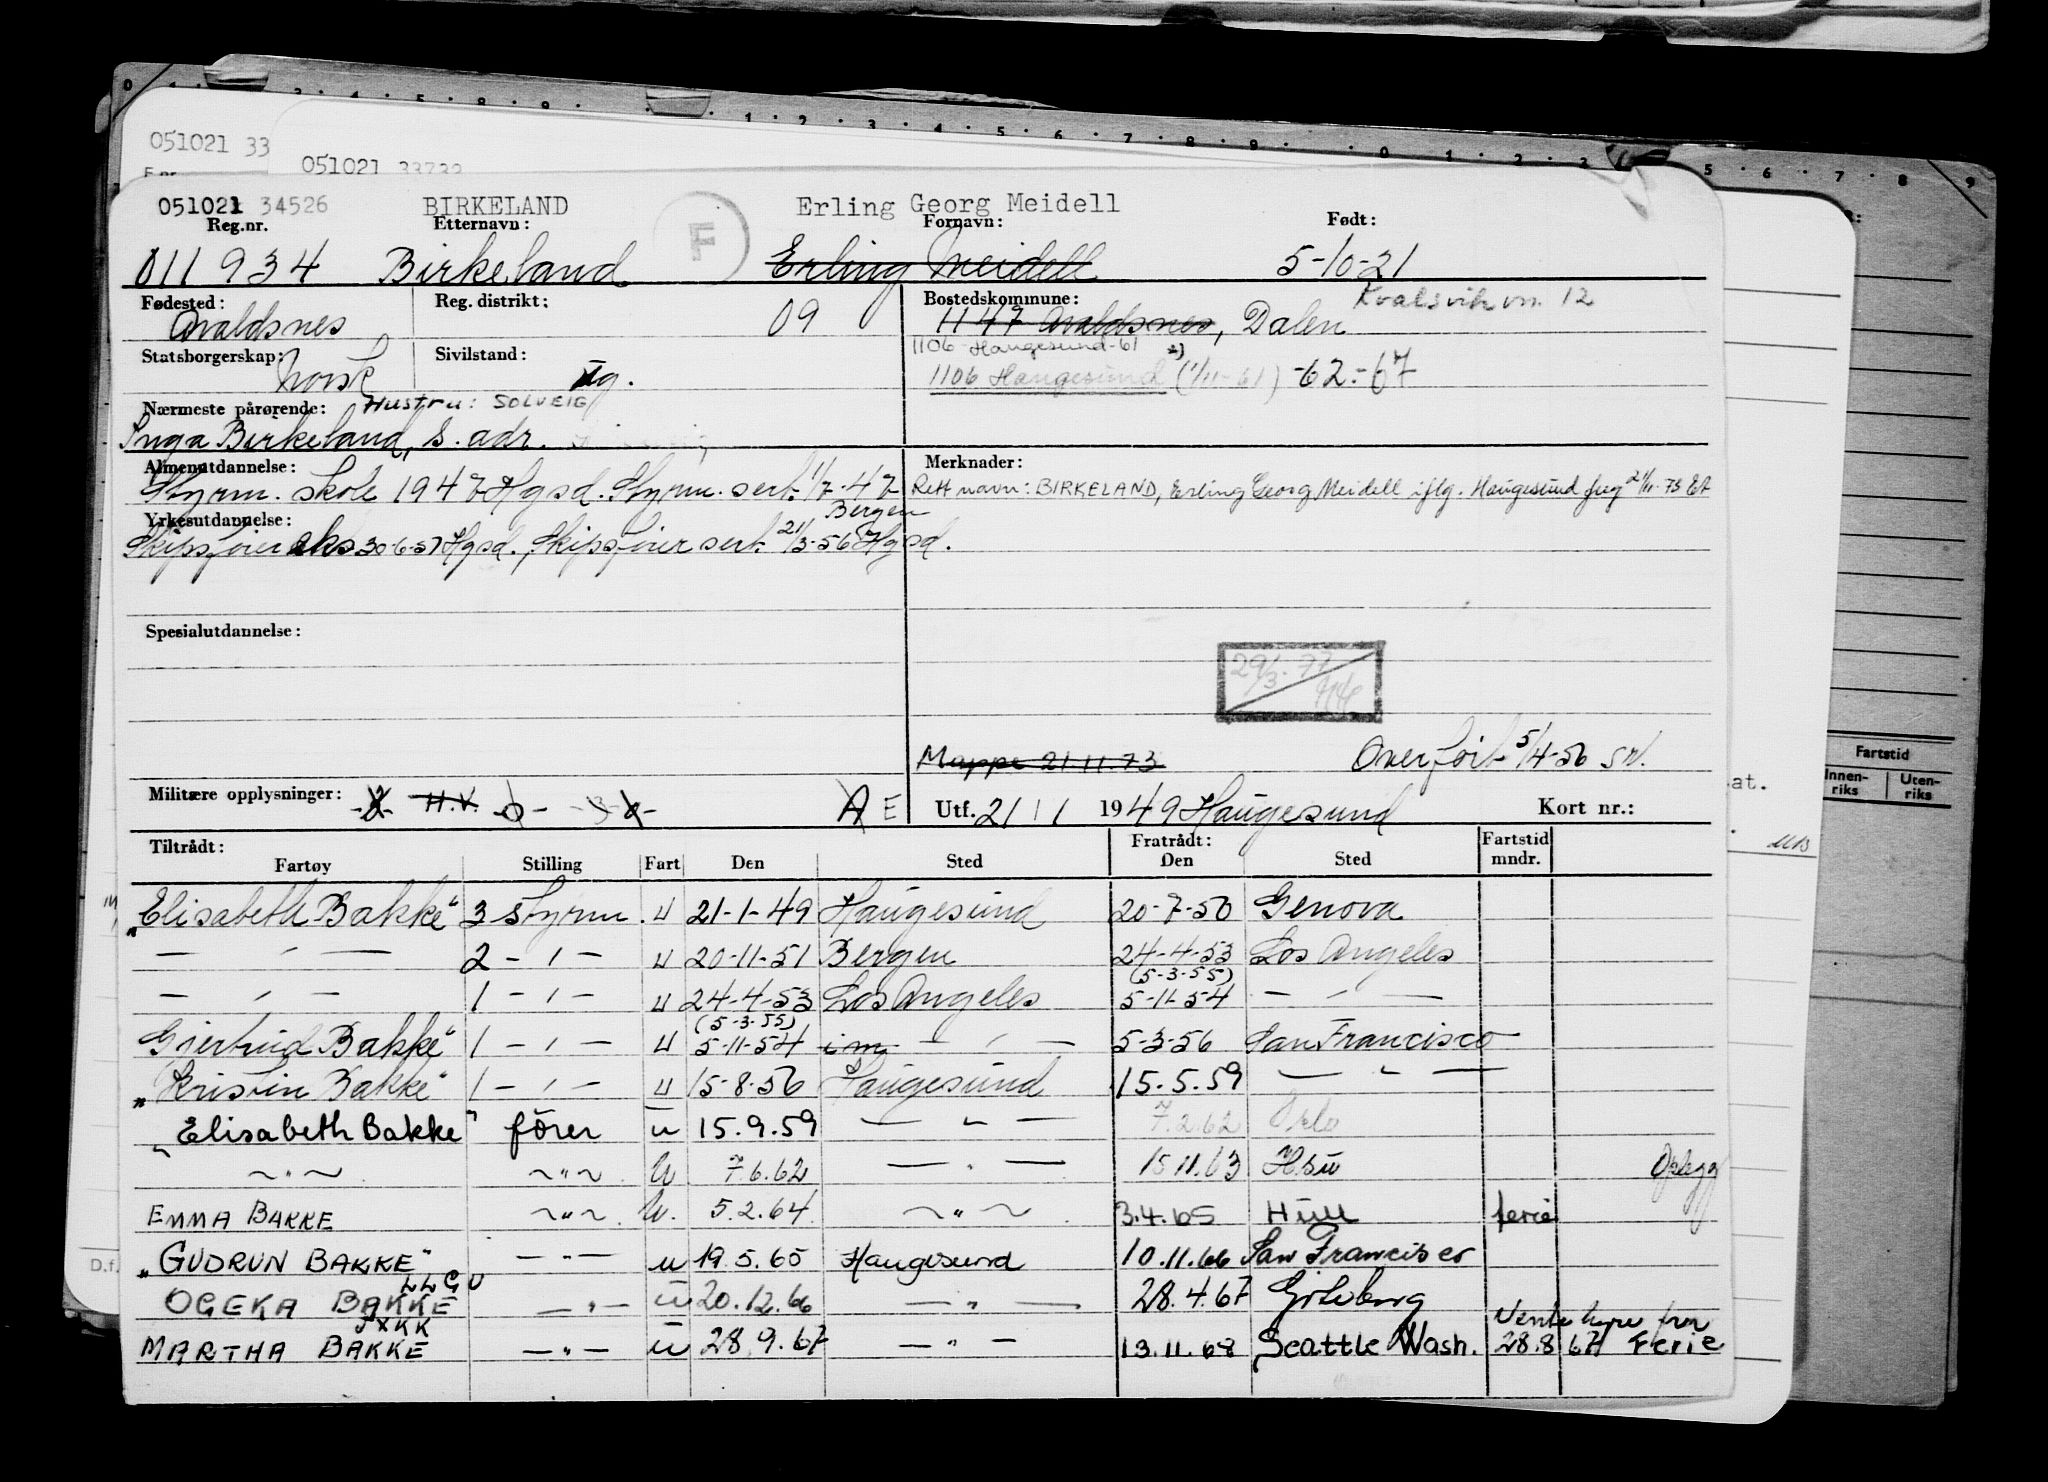 051021 33
051021 33732
051021 34526 BIRKELAND F Erling Georg Meidell
Reg.nr. Etternavn: Fornavn: Født:
011934 Birkeland Erling Meidell 5-10-21
Fødested: Reg. distrikt: Bostedskommune: Kvalsvikvn. 12
Avaldsnes 09 1147 Avaldsnes, Dalen
1106 Haugesund-61
Statsborgerskap: Sivilstand:
Norsk ug. 1106 Haugesund (1/11-61) -62.-67
Nærmeste pårørende: Hustru: SOLVEIG
Inga Birkeland, s. adr.
Almenutdannelse: Merknader:
Styrm. skole 1947 Hgsd. Styrm. sert. 1/7-47 Rett navn: BIRKELAND, Erling Georg Meidell iflg. Haugesund freg 21/11-73
Bergen
Yrkesutdannelse:
Skipsfører eks 30-6-51 Hgsd. Skipsfører sert. 21/3-56 Hgsd.
Spesialutdannelse:
29/3-77
Mappe 21.11.73 Overført 5/4-56
Militære opplysninger: H.V. A E Utf. 21/1 1949 Haugesund Kort nr.:
Tiltrådt: Fratrådt: Fartstid
Fartøy Stilling Fart Den Sted Den Sted mndr.
"Elisabeth Bakke" 3 styrm. u 21-1-49 Haugesund 20-7-50 Genova
— ı — 2 - ı - u 20-11-51 Bergen 24-4-53 Los Angeles
(5-3-55)
— ı — 1 - ı - u 24-4-53 Los Angeles 5-11-54 — ı —
(5-3-55)
Gjertrud Bakke" 1 - ı - u 5-11-54 im — ı — 5-3-56 San Francisco
"Kristin Bakke" 1 - ı - u 15-8-56 Haugesund 15.5.59 — " —
"Elisabeth Bakke" fører u 15.9.59 — " — 7.2.62 Oslo
~ " ~ ~ " ~ u 7.6.62 — " — 15.11.63 Hsu Opplegg
EMMA BAKKE ~ " ~ u. 5.2.64 ~ " ~ 3.4.65 Hull ferie
"GUDRUN BAKKE" — " — u 19.5.65 Haugesund 10.11.66 San Francisco
LLGU
OGEKA BAKKE — " — u 20.12.66 — " — 28.4.67 Göteborg
JXKK Ventehyre fra
MARTHA BAKKE — " — u 28.9.67 — " — 13.11.68 Seattle Wash. 28.8 67 Ferie
Fartstid
Innen-
riks
Uten-
riks